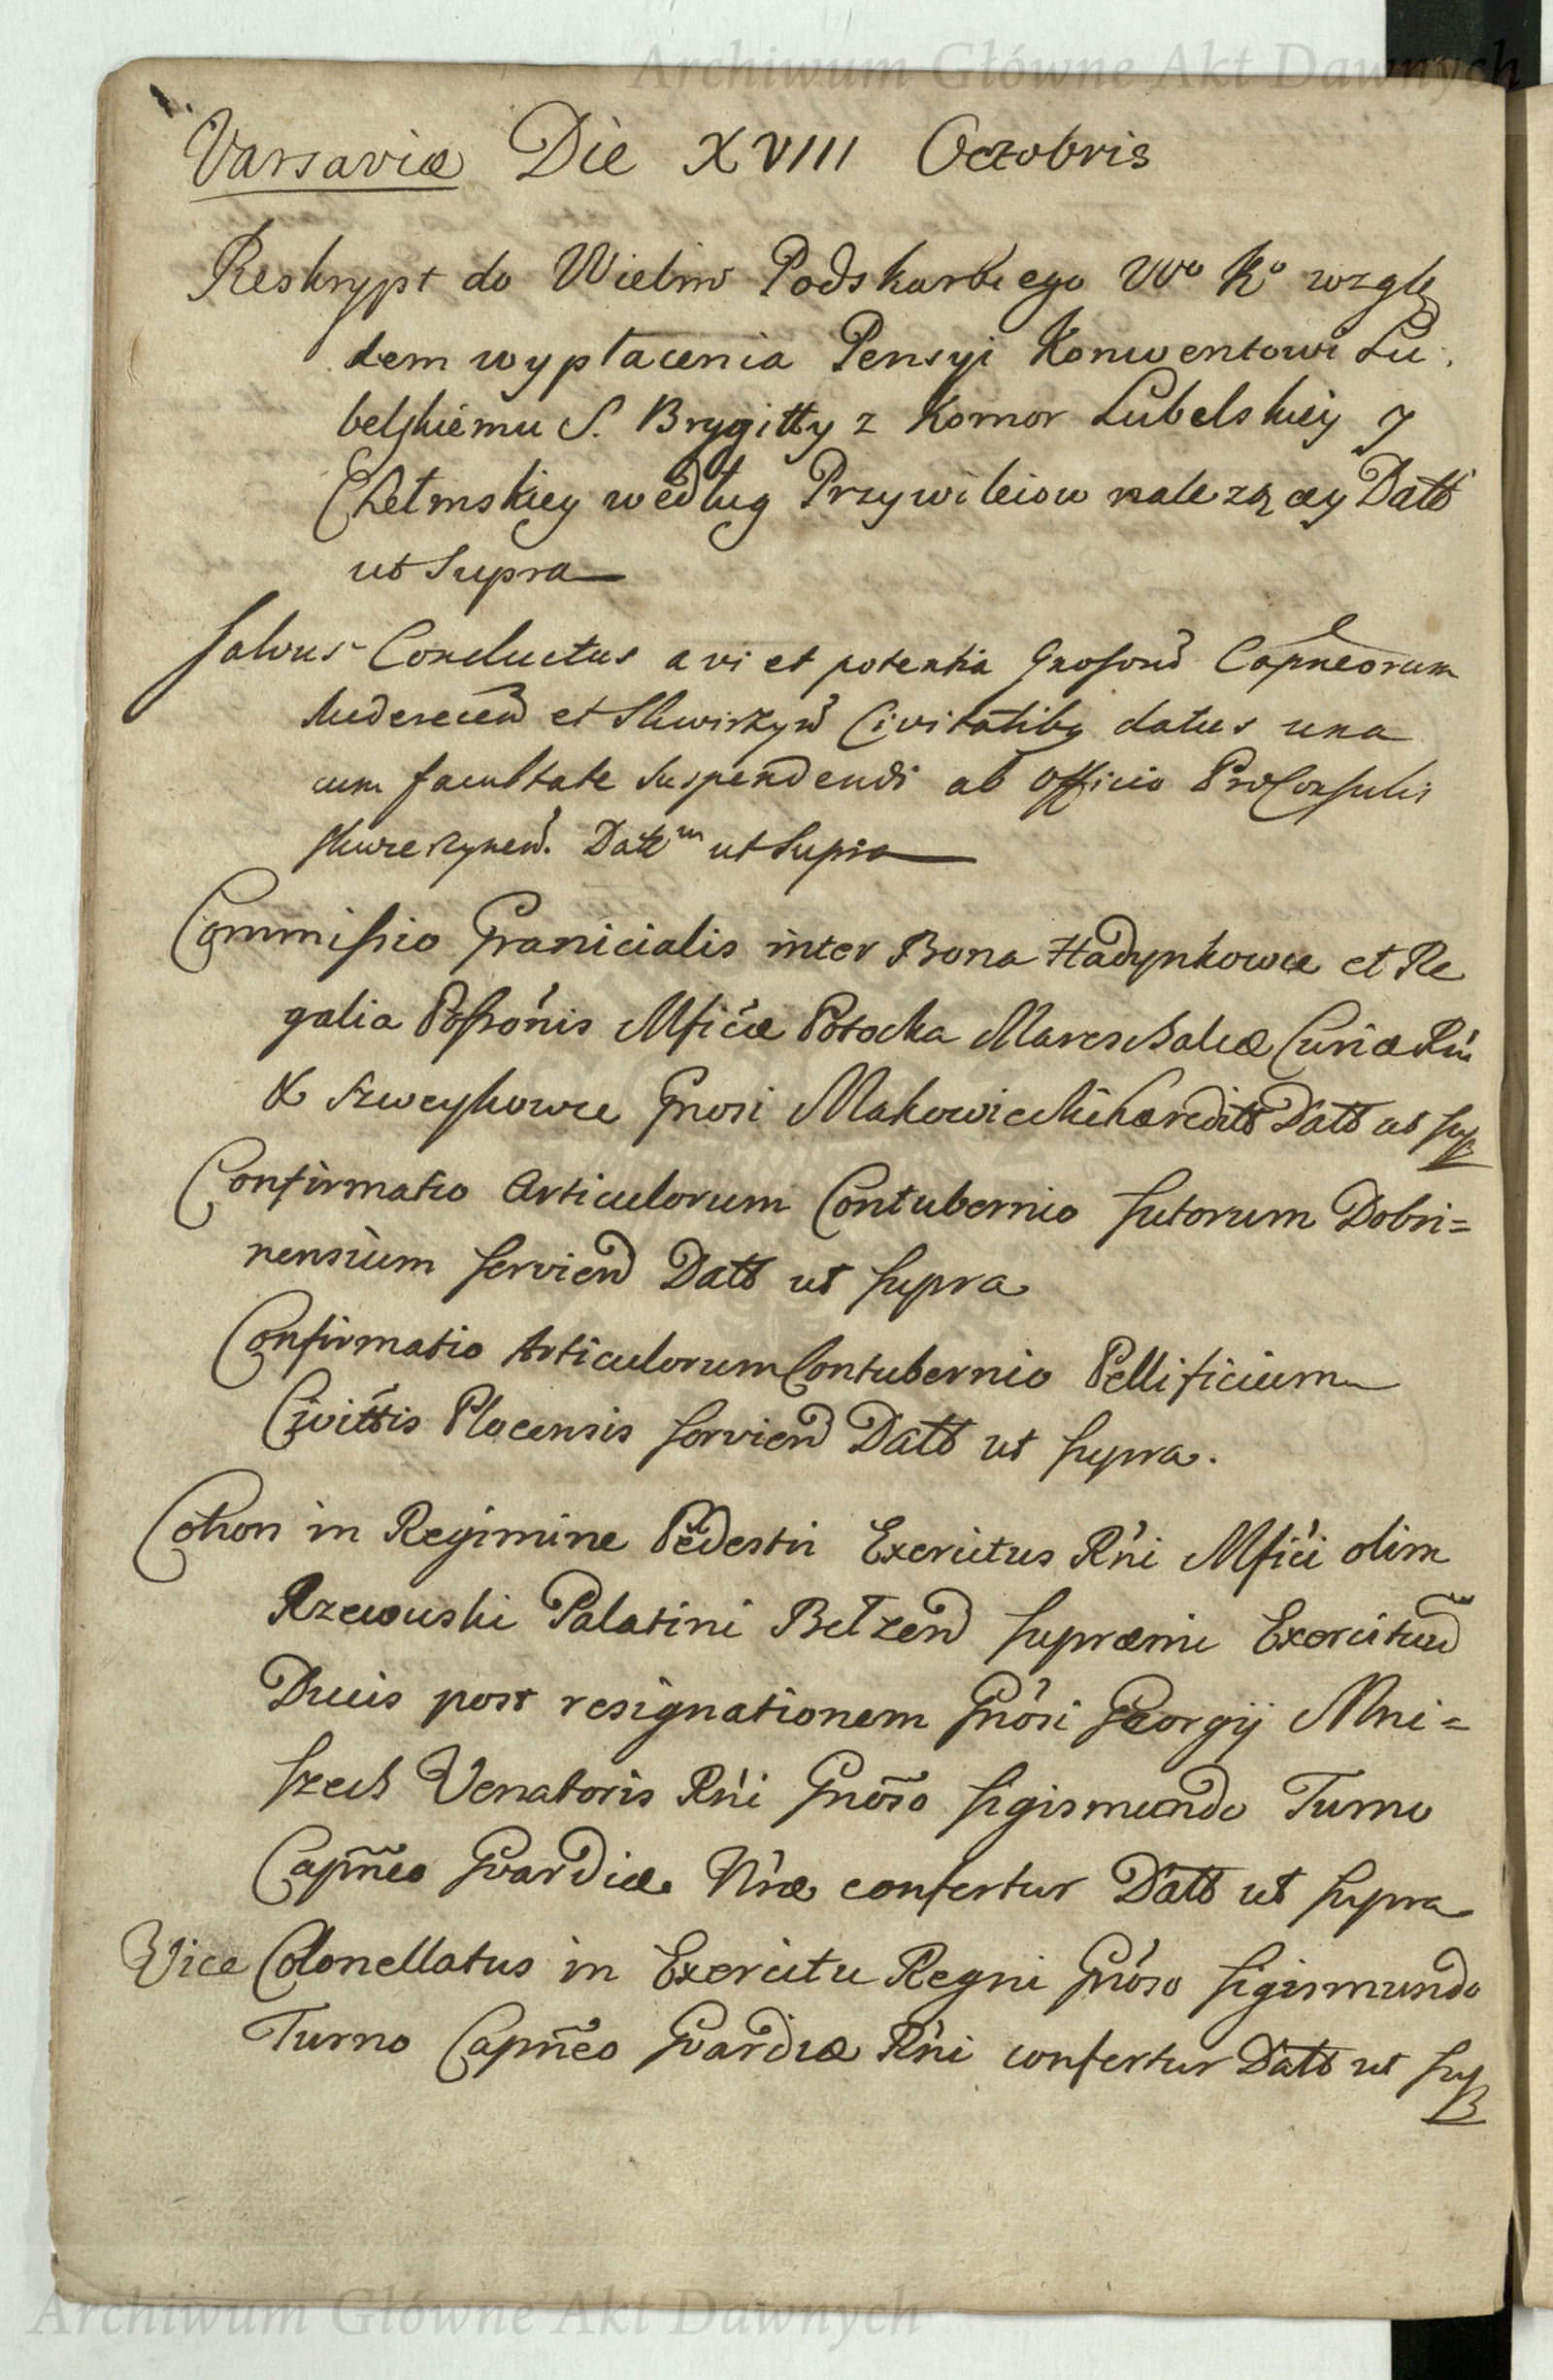 Archiwum Główne Akt Dawnych
Varsaviæ Die XVIII Octobris
Reskrypt do Wielmo Podskarbiego Wo Ko wzglę
dem wypłacenia Pensyi Konwentowi Lu
belskiemu S. Brygitty z Komor Lubelskiey y
Chełmskiey według Przywileiow należącey Datt
ut Supra
Salvus Conductus a vi et potentia Capneorum
et Civitatibq datus una
cum facultate Suspendendi ab Officio ProConsulis
Dattm ut Supra
Commissio Granicialis inter Bona Hadynkowce et Re
galia Possõnis Mficæ Potocka Mareschalcæ Curiæ Rni
& Szweykowce Gnosi Makowiecki hæredits Datt ut sup
Confirmatio Articulorum Contubernio sutorum Dobri=
nensium serviend Datt ut supra
Confirmatio Articulorum Contubernio Pellificium
Civittis Plocensis serviend Datt ut supra.
Cohors in Regimine Pedestri Exercitus Rni Mfici olim
Rzewuski Palatini Bełzen supræmi Exercituũ
Ducis post resignationem Gnosi Georgij Mni=
szech Venatoris Rni Gnõso sigismundo Turno
Capñeo Gvardiæ Nræ confertur Datt ut supra
Vice Colonellatus in Exercitu Regni Gnoso sigismundo
Turno Capñeo Gvardiæ Rni confertur Datt ut sup
Archiwum Główne Akt Dawnych